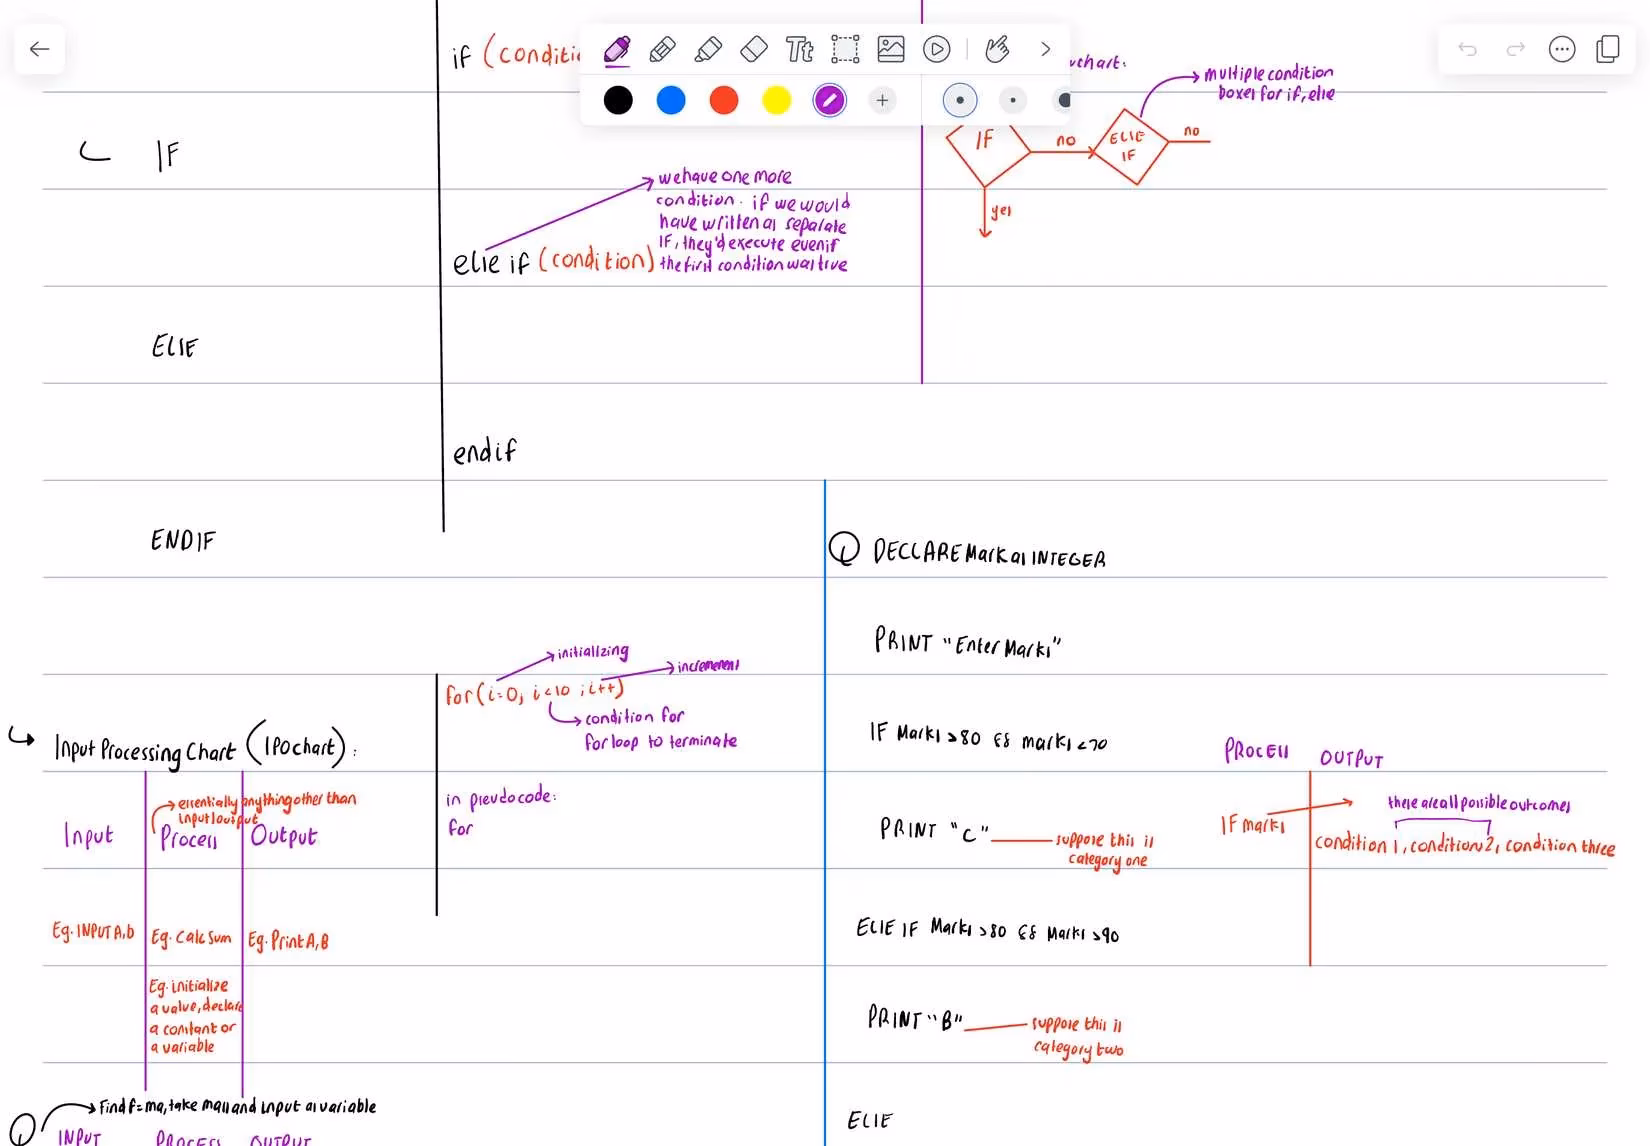 if (conditi
Tt
wchart:
multiple condition
boxes for if, else
IF
IF
no
ELSE
IF
no
yes
we have one more
condition. if we would
have written as separate
IF, they'd execute even if
the first condition was true
else if (condition)
ELSE
endif
ENDIF
Q DECLARE Mark as INTEGER
PRINT "Enter Marks"
initializing
increment
for (i=0; i<10; i++)
condition for
for loop to terminate
IF Marks >80 && marks <70
Input Processing Chart (IPO chart):
PROCESS
OUTPUT
essentially anything other than
input output
Input
Process
Output
in pseudocode:
for
PRINT "C"
suppose this is
category one
IF marks
these are all possible outcomes
condition 1, condition 2, condition three
Eg. INPUT A, b
Eg. Calc Sum
Eg. Print A, B
ELSE IF Marks >80 && Marks >90
Eg. initialize
a value, declare
a constant or
a variable
PRINT "B"
suppose this is
category two
Q
Find f=ma, take mass and input as variable
ELSE
INPUT
PROCESS
OUTPUT